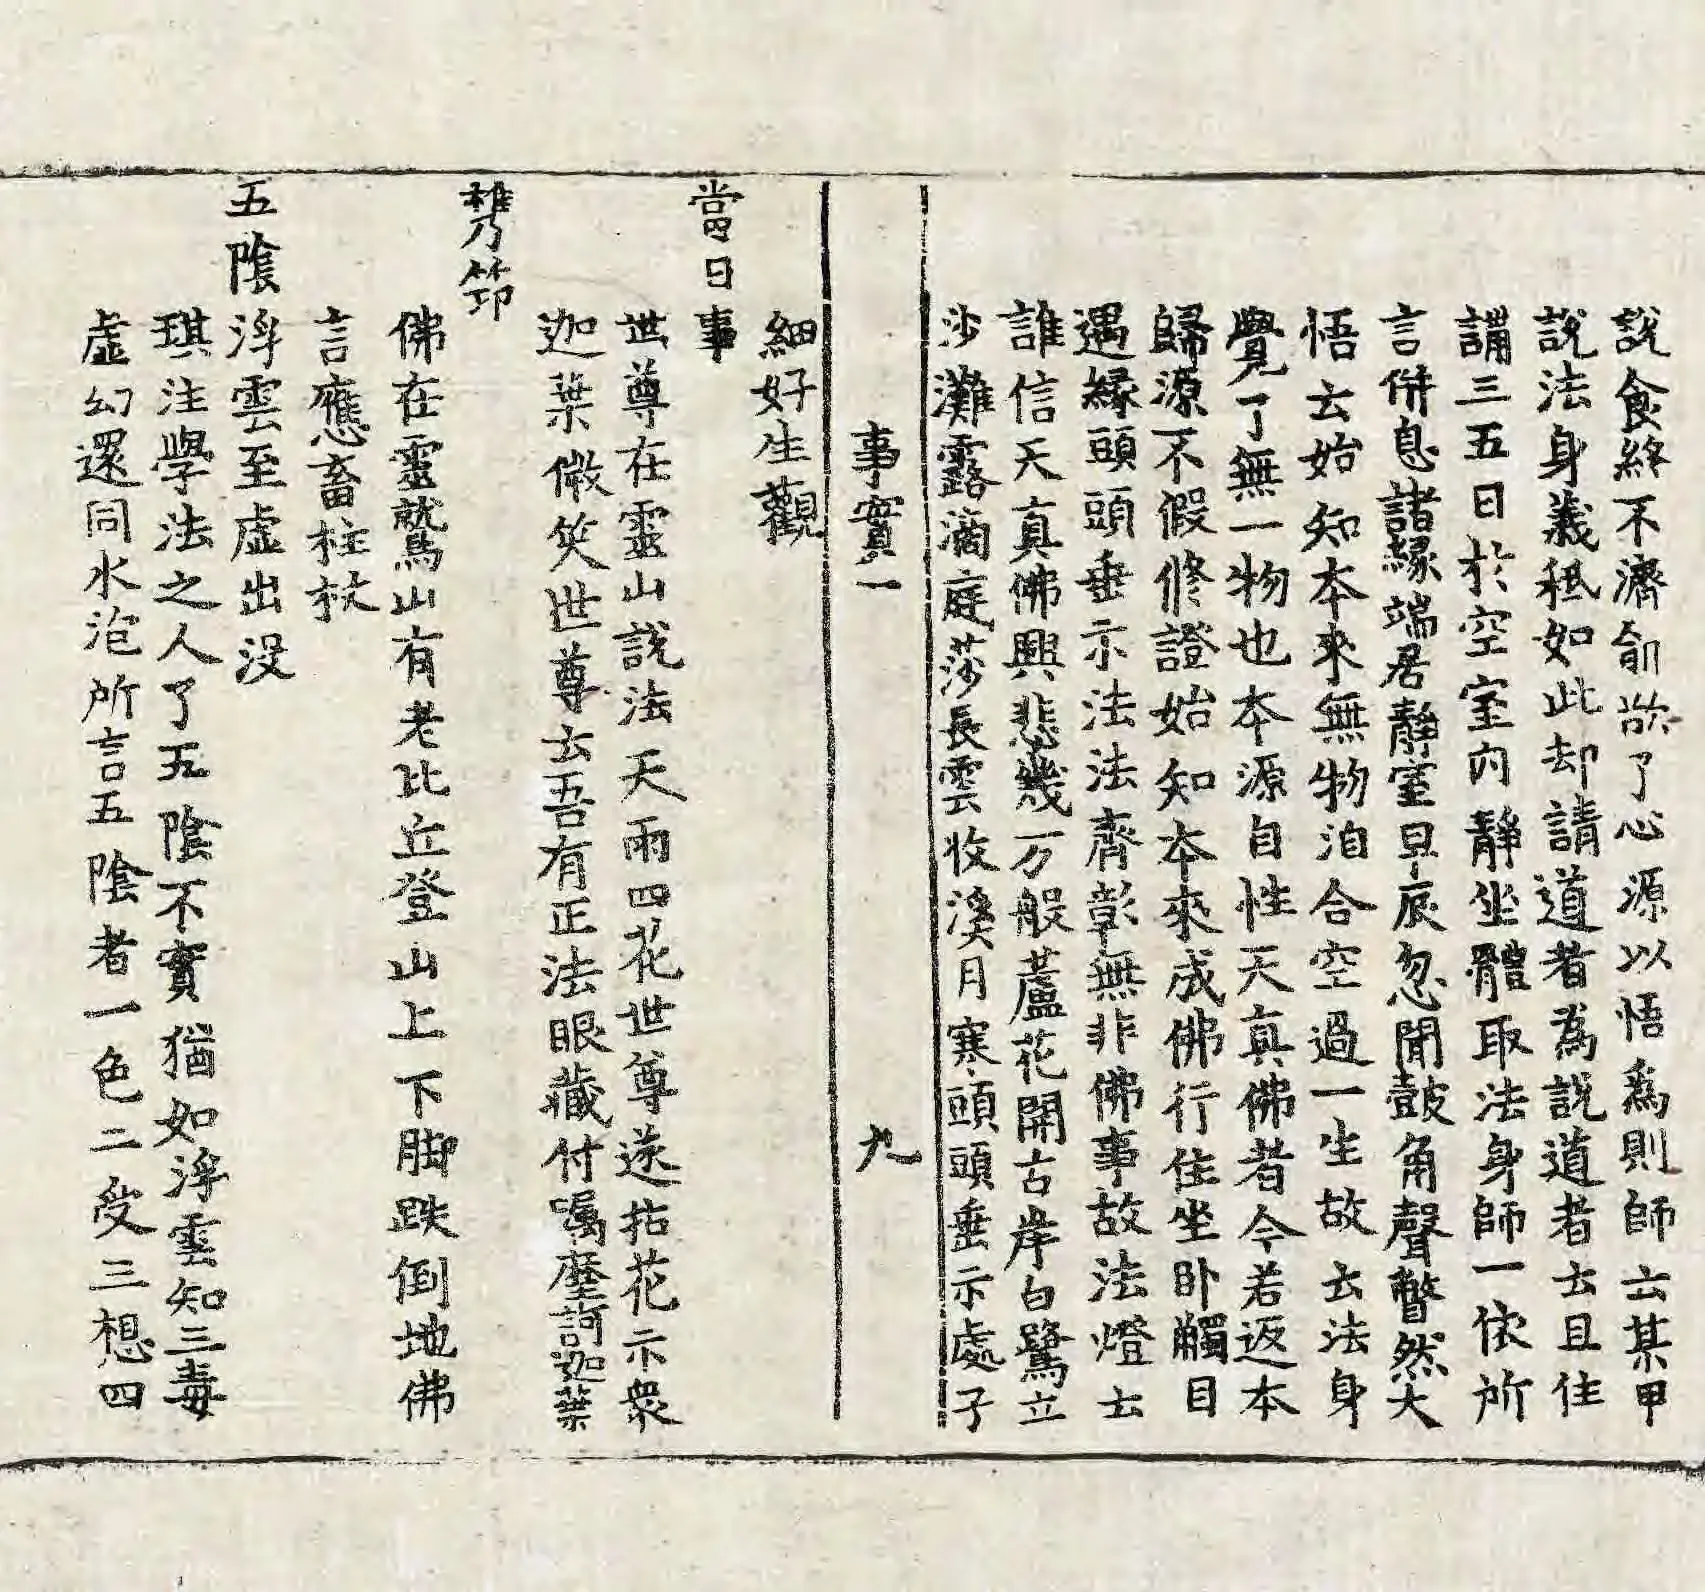 說食終不濟飢欲了心源以悟爲則師云某甲
說法身義秪如此却請道者為說道者云且住
講三五日於空室內靜坐體取法身師一依所
言併息諸緣端居靜室早辰忽聞鼓角聲瞥然大
悟云始知本來無物洎合空過一生故云法身
覺了無一物也本源自性天真佛者今若返本
歸源不假修證始知本來成佛行住坐卧觸目
遇緣頭頭垂示法法齊彰無非佛事故法燈云
誰信天真佛興悲幾万般蘆花開古岸白鷺立
沙灘露滴庭莎長雲收溪月寒頭頭垂示處子
事實一 九
細好生觀
當日事
世尊在靈山說法天雨四花世尊遂拈花示衆
迦葉微笑世尊云吾有正法眼藏付囑摩訶迦葉
携笻
佛在靈鷲山有老比丘登山上下脚跌倒地佛
言應畜柱杖
五陰浮雲至虛出沒
琪注學法之人了五陰不實猶如浮雲知三毒
虛幻還同水泡所言五陰者一色二受三想四